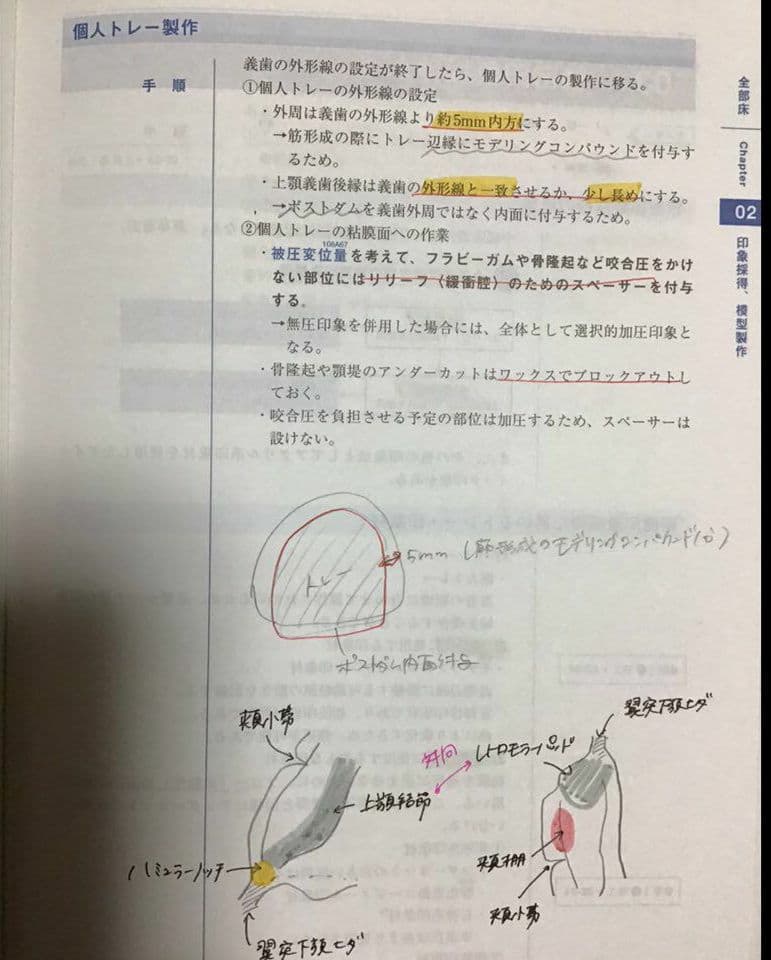 個人トレー製作
手 順
義歯の外形線の設定が終了したら、個人トレーの製作に移る。
①個人トレーの外形線の設定
・外周は義歯の外形線より約5mm内方にする。
→筋形成の際にトレー辺縁にモデリングコンパウンドを付与す
るため。
・上顎義歯後縁は義歯の外形線と一致させるか、少し長めにする。
→ポストダムを義歯外周ではなく内面に付与するため。
②個人トレーの粘膜面への作業
106A67
・被圧変位量を考えて、フラビーガムや骨隆起など咬合圧をかけ
ない部位にはリリーフ（緩衝腔）のためのスペーサーを付与
する。
→無圧印象を併用した場合には、全体として選択的加圧印象と
なる。
・骨隆起や顎堤のアンダーカットはワックスでブロックアウトし
ておく。
・咬合圧を負担させる予定の部位は加圧するため、スペーサーは
設けない。
全部床
Chapter
02
印象採得、模型製作
5mm（筋形成のモデリングコンパウンド分）
トレー
ポストダム内面付与
頰小帯
対向
レトロモラーパッド
翼突下顎ヒダ
上顎結節
ハミュラーノッチ
翼突下顎ヒダ
頰棚
頰小帯